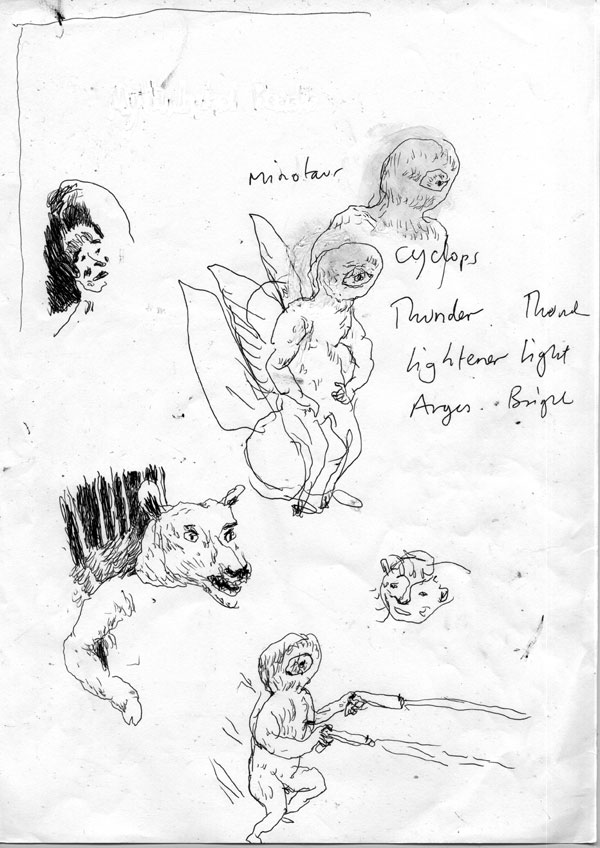 Minotaur
Cyclops
Thunder
Lightener Light
Arges. Bright